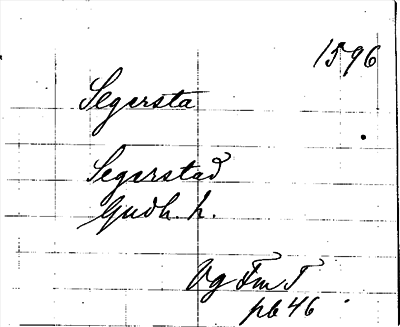 1596
Segersta
Segerstad
Gudh. h.
Vg Fm T
pb 46